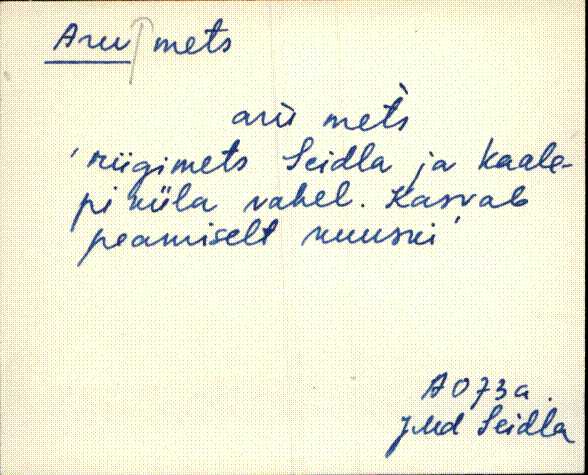 Aru mets
aru mets
'riigimets Seidla ja Kaale-
pi küla vahel. Kasvab
peamiselt kuuski'
A073a.
JMd Seidla